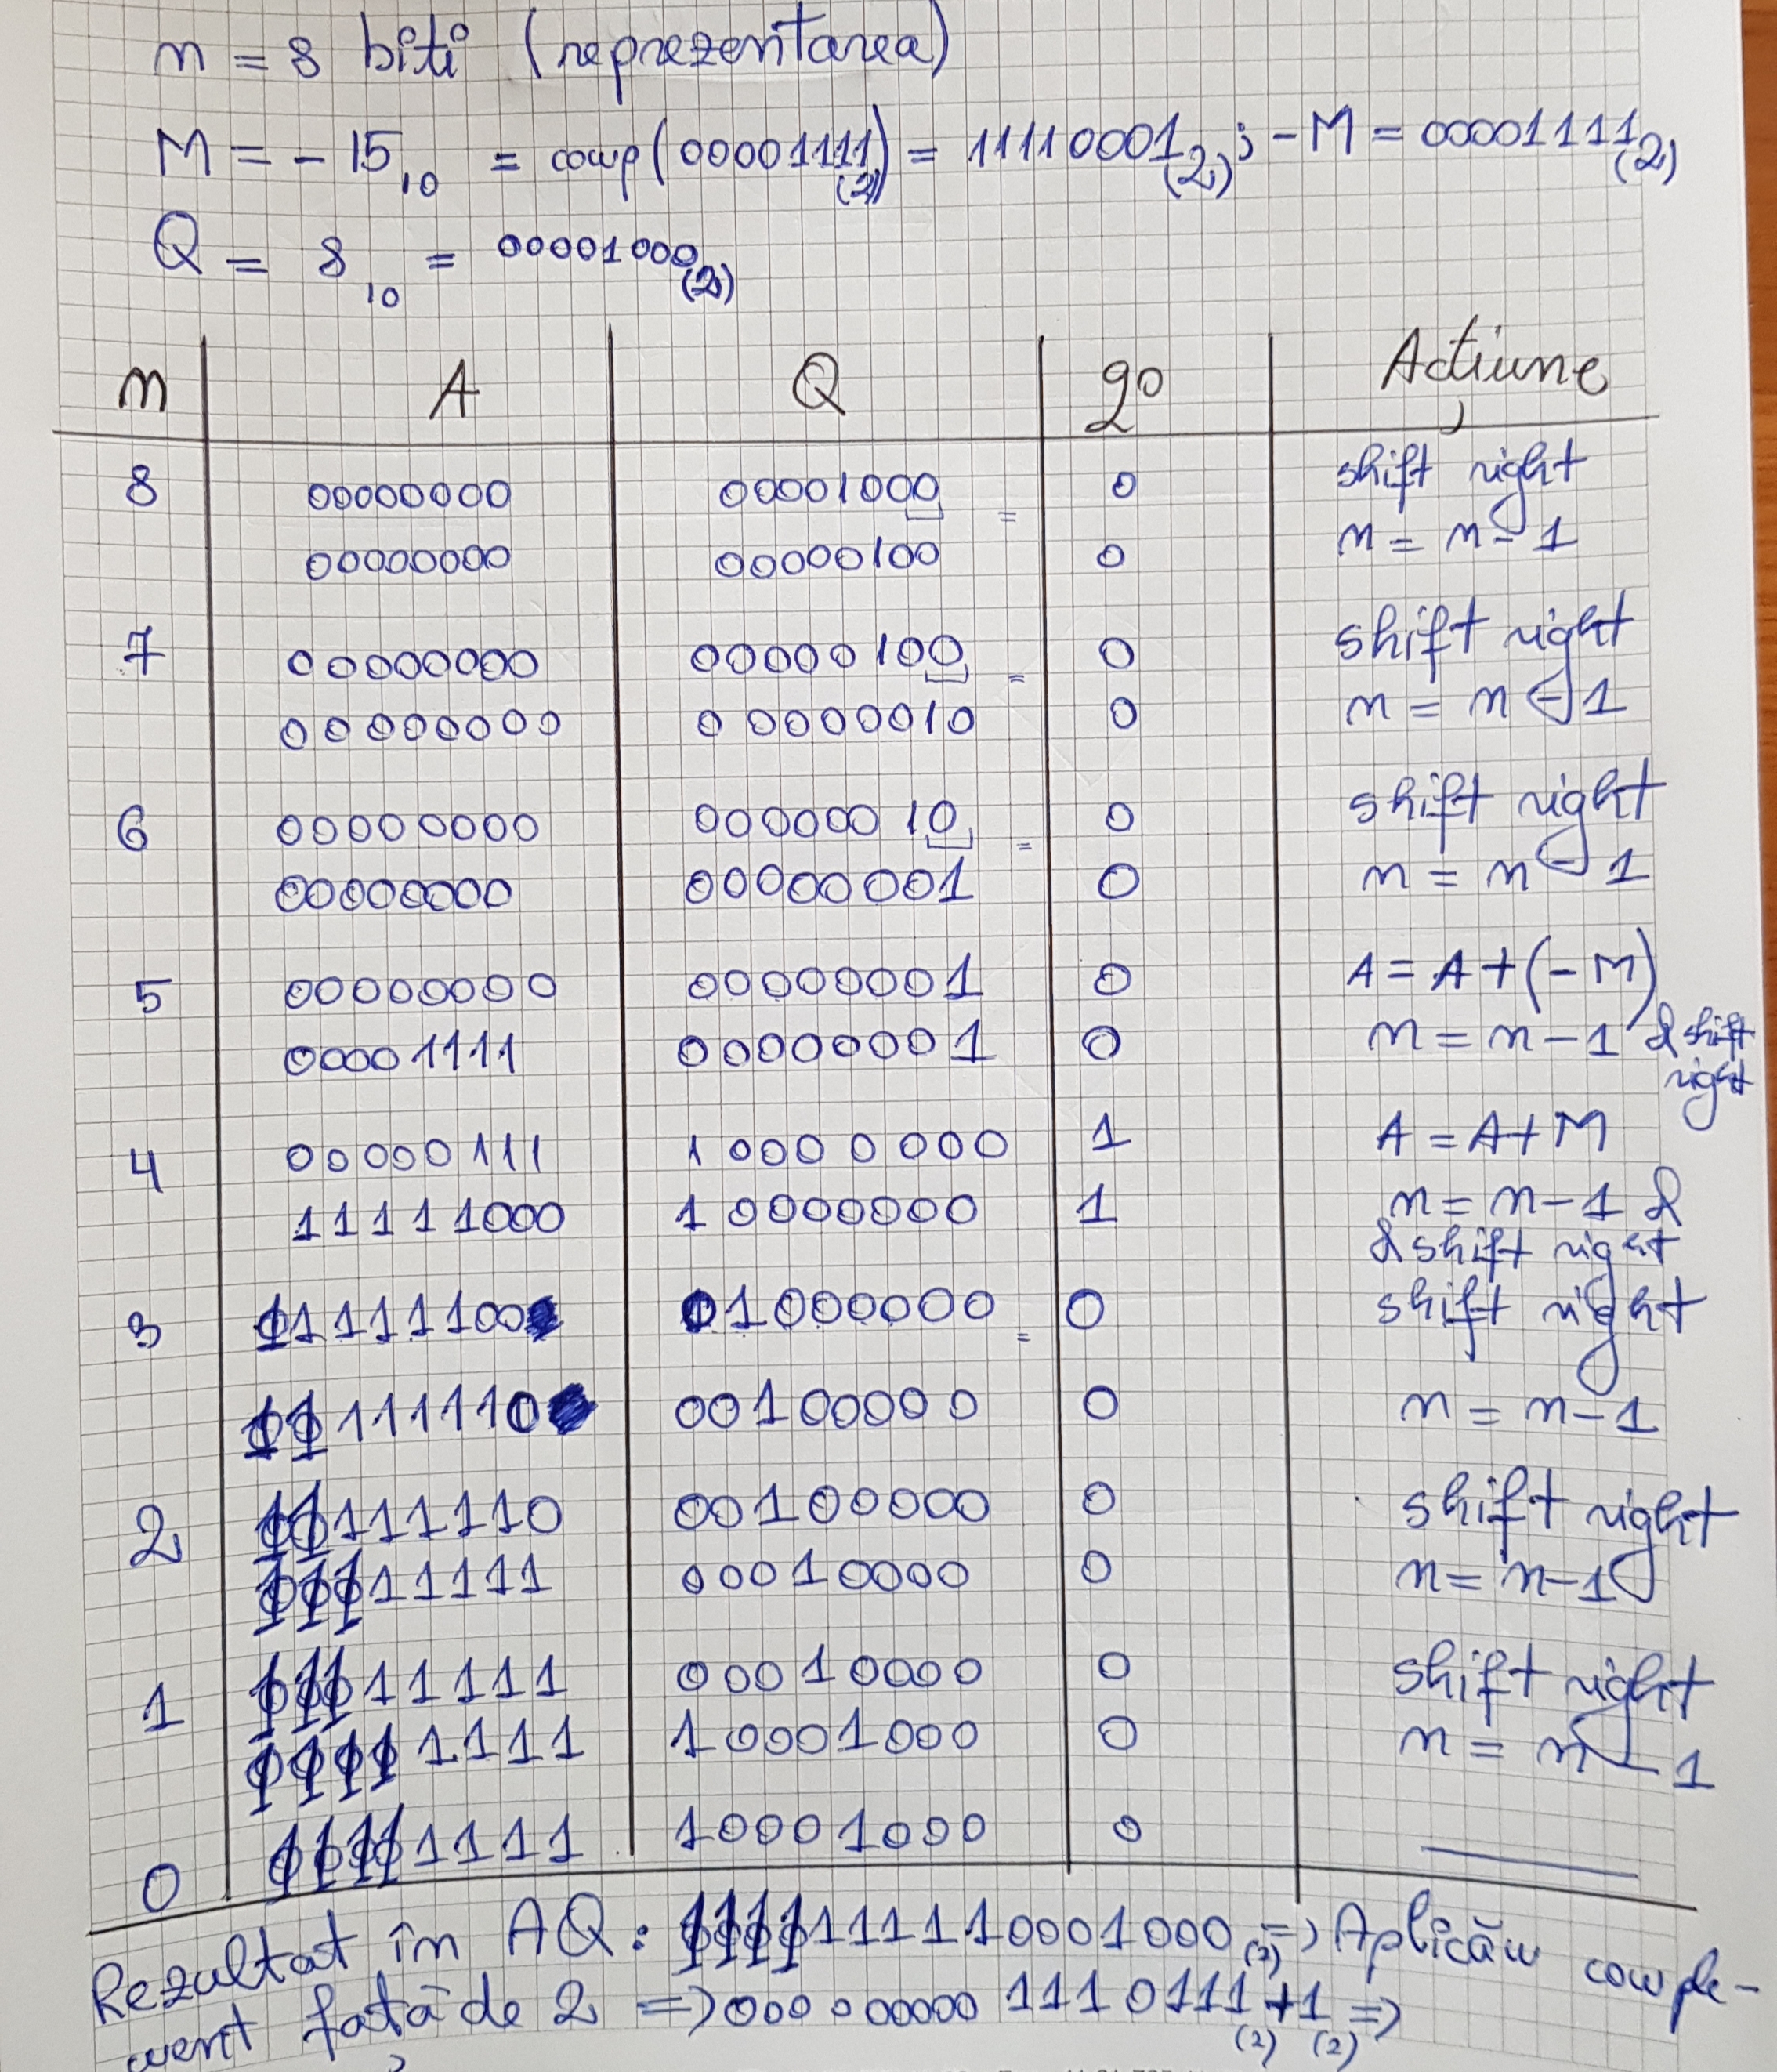 n = 8 biti (reprezentarea)
M = -15₁₀ = comp(00001111₍₂₎) = 11110001₍₂₎ ; -M = 00001111₍₂₎
Q = 8₁₀ = 00001000₍₂₎
n A Q q0 Acțiune
8 00000000 00001000 = 0 shift right
00000000 00000100 0 n = n - 1
7 00000000 00000100 = 0 shift right
00000000 00000010 0 n = n - 1
6 00000000 00000010 = 0 shift right
00000000 00000001 0 n = n - 1
5 00000000 00000001 0 A = A + (-M)
00001111 00000001 0 n = n - 1 & shift
right
4 00000111 10000000 1 A = A + M
11111000 10000000 1 n = n - 1 &
& shift right
3 11111100 01000000 = 0 shift right
11111110 00100000 0 n = n - 1
2 11111110 00100000 0 shift right
11111111 00010000 0 n = n - 1
1 11111111 00010000 0 shift right
11111111 10001000 0 n = n - 1
0 11111111 10001000 0
Rezultat în AQ: 1111111110001000₍₂₎ => Aplicăm comple-
ment față de 2 => 0000000001110111₍₂₎ + 1₍₂₎ =>